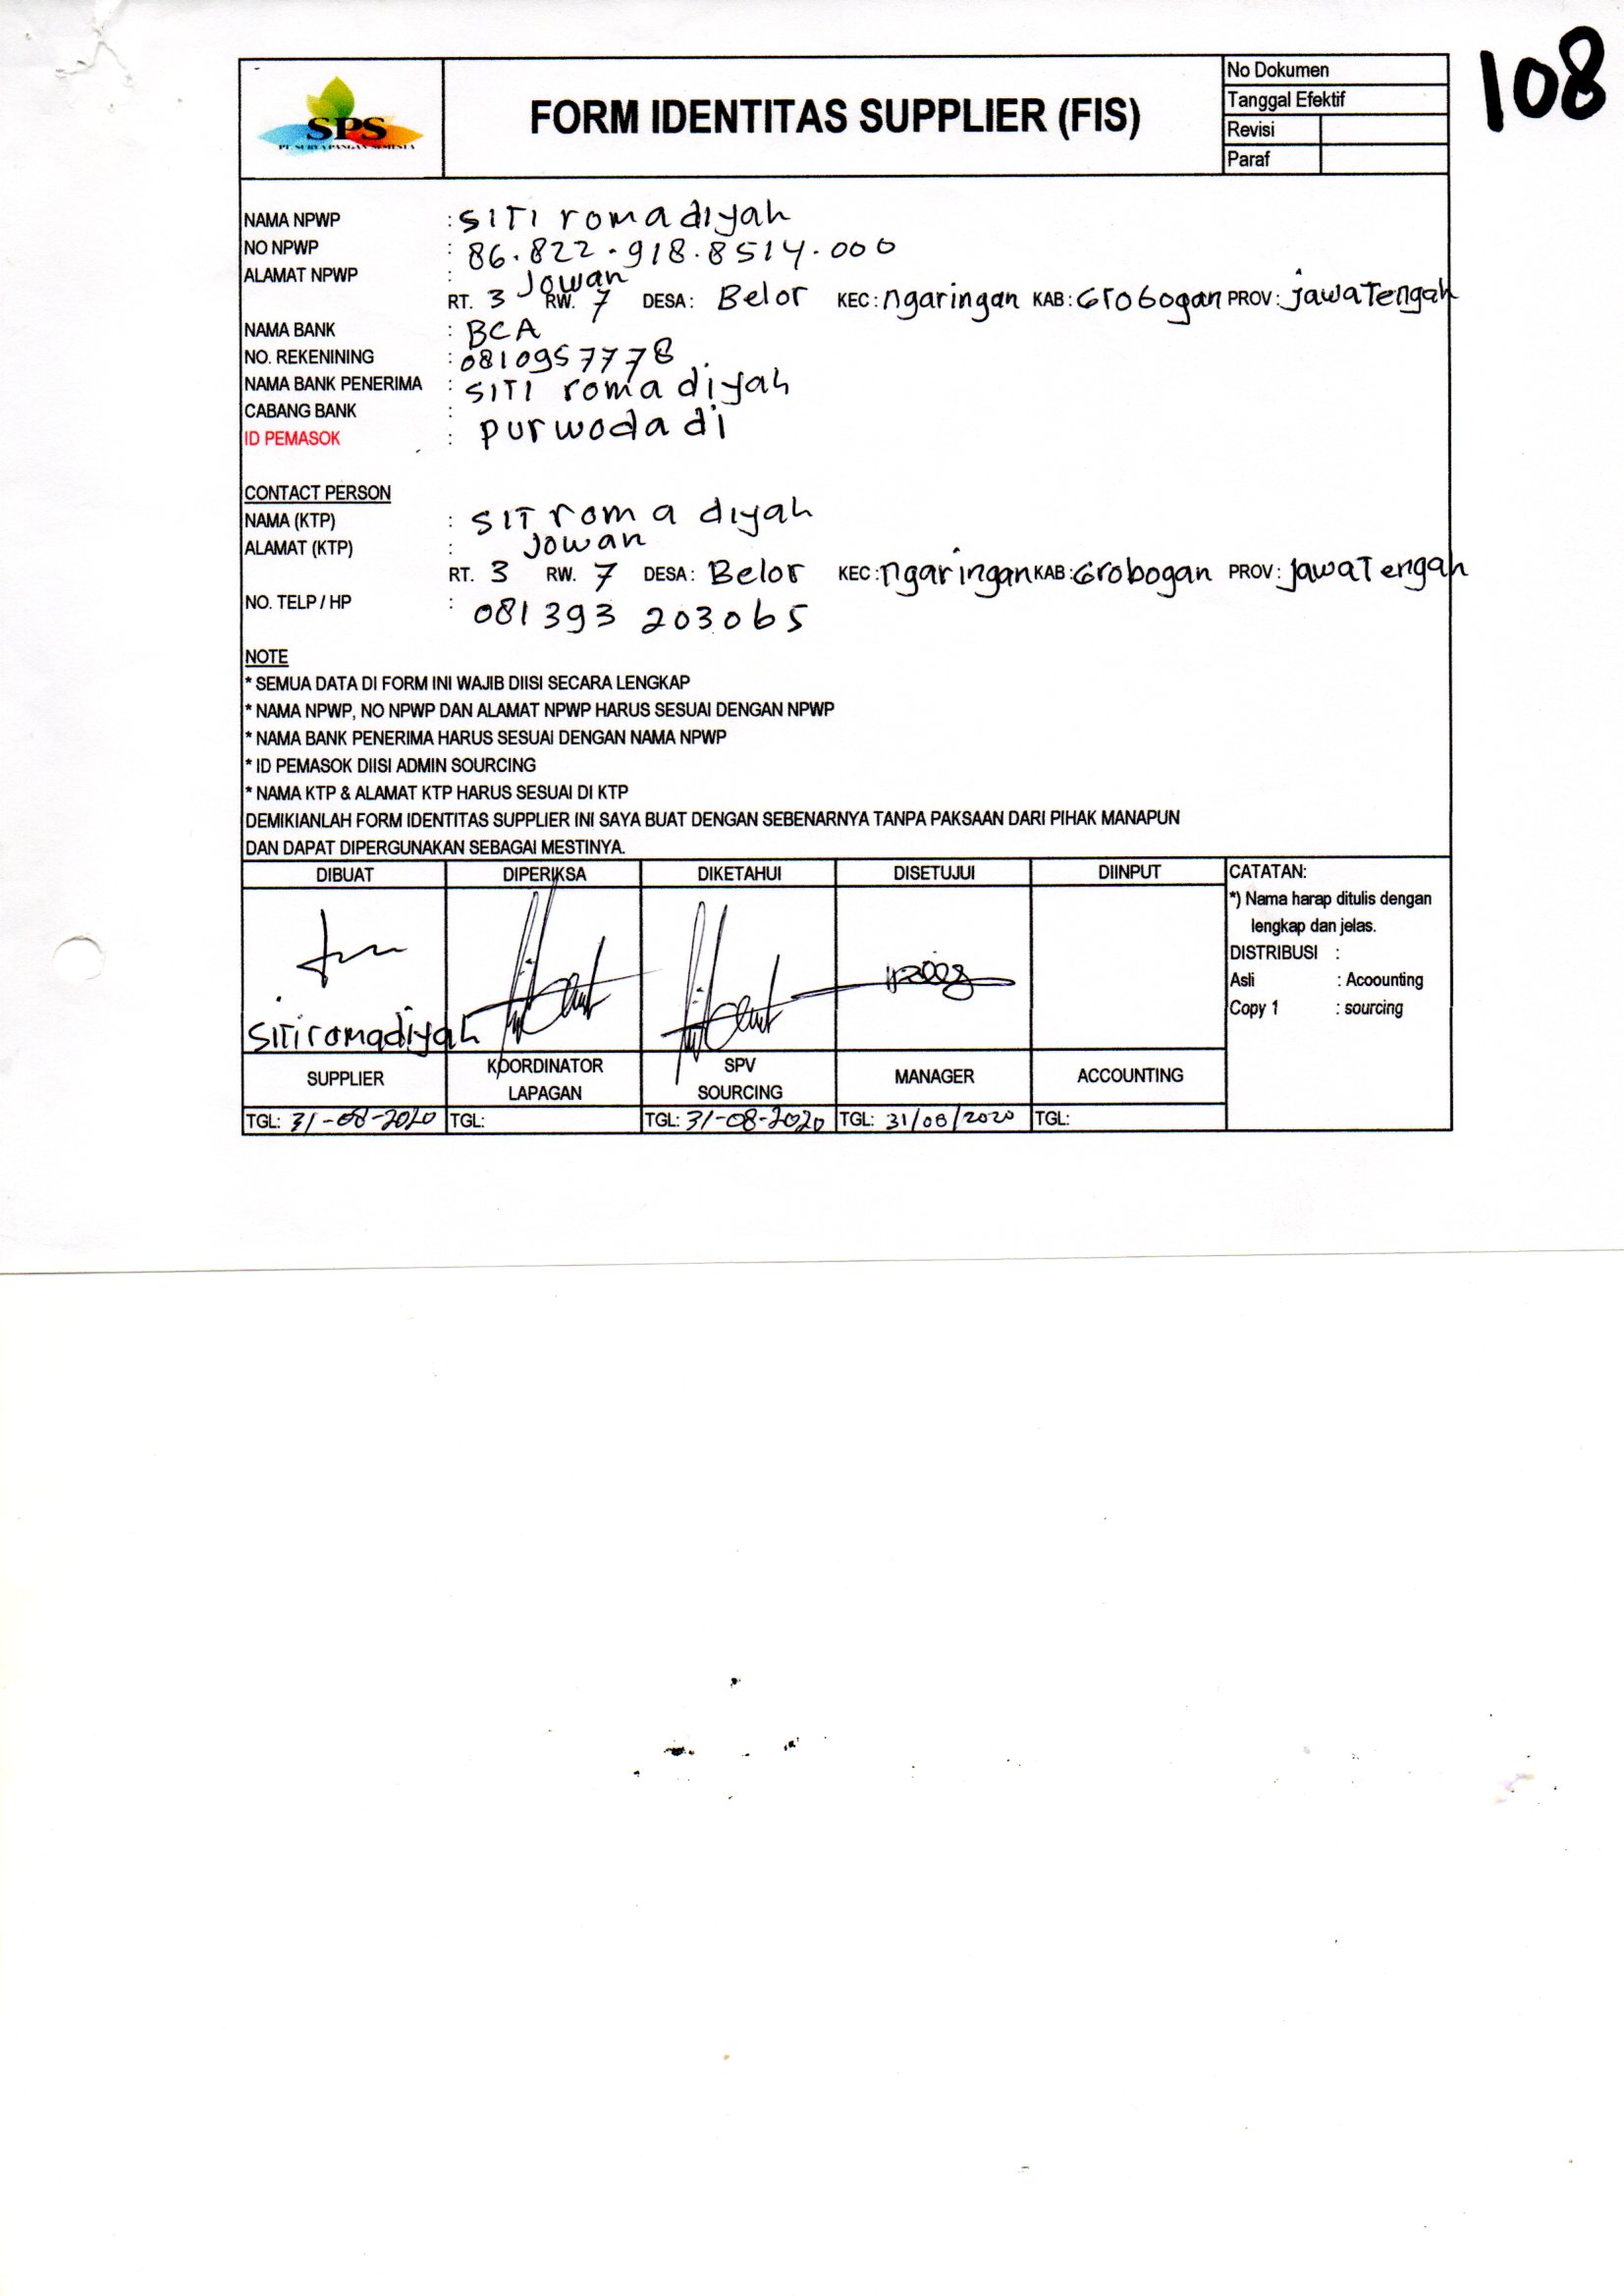 108
SPS
PT. SURYA PANGAN SEMESTA
FORM IDENTITAS SUPPLIER (FIS)
No Dokumen
Tanggal Efektif
Revisi
Paraf
NAMA NPWP : SITI romadiyah
NO NPWP : 86.822.918.8514.000
ALAMAT NPWP : Jowan
RT. 3 RW. 7 DESA : Belor KEC : ngaringan KAB : Grobogan PROV : jawa Tengah
NAMA BANK : BCA
NO. REKENINING : 0810957778
NAMA BANK PENERIMA : SITI romadiyah
CABANG BANK :
ID PEMASOK : purwodadi
CONTACT PERSON
NAMA (KTP) : SIT romadiyah
ALAMAT (KTP) : Jowan
RT. 3 RW. 7 DESA : Belor KEC : ngaringan KAB : Grobogan PROV : jawa Tengah
NO. TELP / HP : 081393 203065
NOTE
* SEMUA DATA DI FORM INI WAJIB DIISI SECARA LENGKAP
* NAMA NPWP, NO NPWP DAN ALAMAT NPWP HARUS SESUAI DENGAN NPWP
* NAMA BANK PENERIMA HARUS SESUAI DENGAN NAMA NPWP
* ID PEMASOK DIISI ADMIN SOURCING
* NAMA KTP & ALAMAT KTP HARUS SESUAI DI KTP
DEMIKIANLAH FORM IDENTITAS SUPPLIER INI SAYA BUAT DENGAN SEBENARNYA TANPA PAKSAAN DARI PIHAK MANAPUN
DAN DAPAT DIPERGUNAKAN SEBAGAI MESTINYA.
DIBUAT DIPERIKSA DIKETAHUI DISETUJUI DIINPUT
CATATAN:
*) Nama harap ditulis dengan
lengkap dan jelas.
DISTRIBUSI :
Asli : Acoounting
Copy 1 : sourcing
SITI romadiyah
SUPPLIER
KOORDINATOR
LAPAGAN
SPV
SOURCING
MANAGER
ACCOUNTING
TGL: 31-08-2020 TGL: TGL: 31-08-2020 TGL: 31/08/2020 TGL: